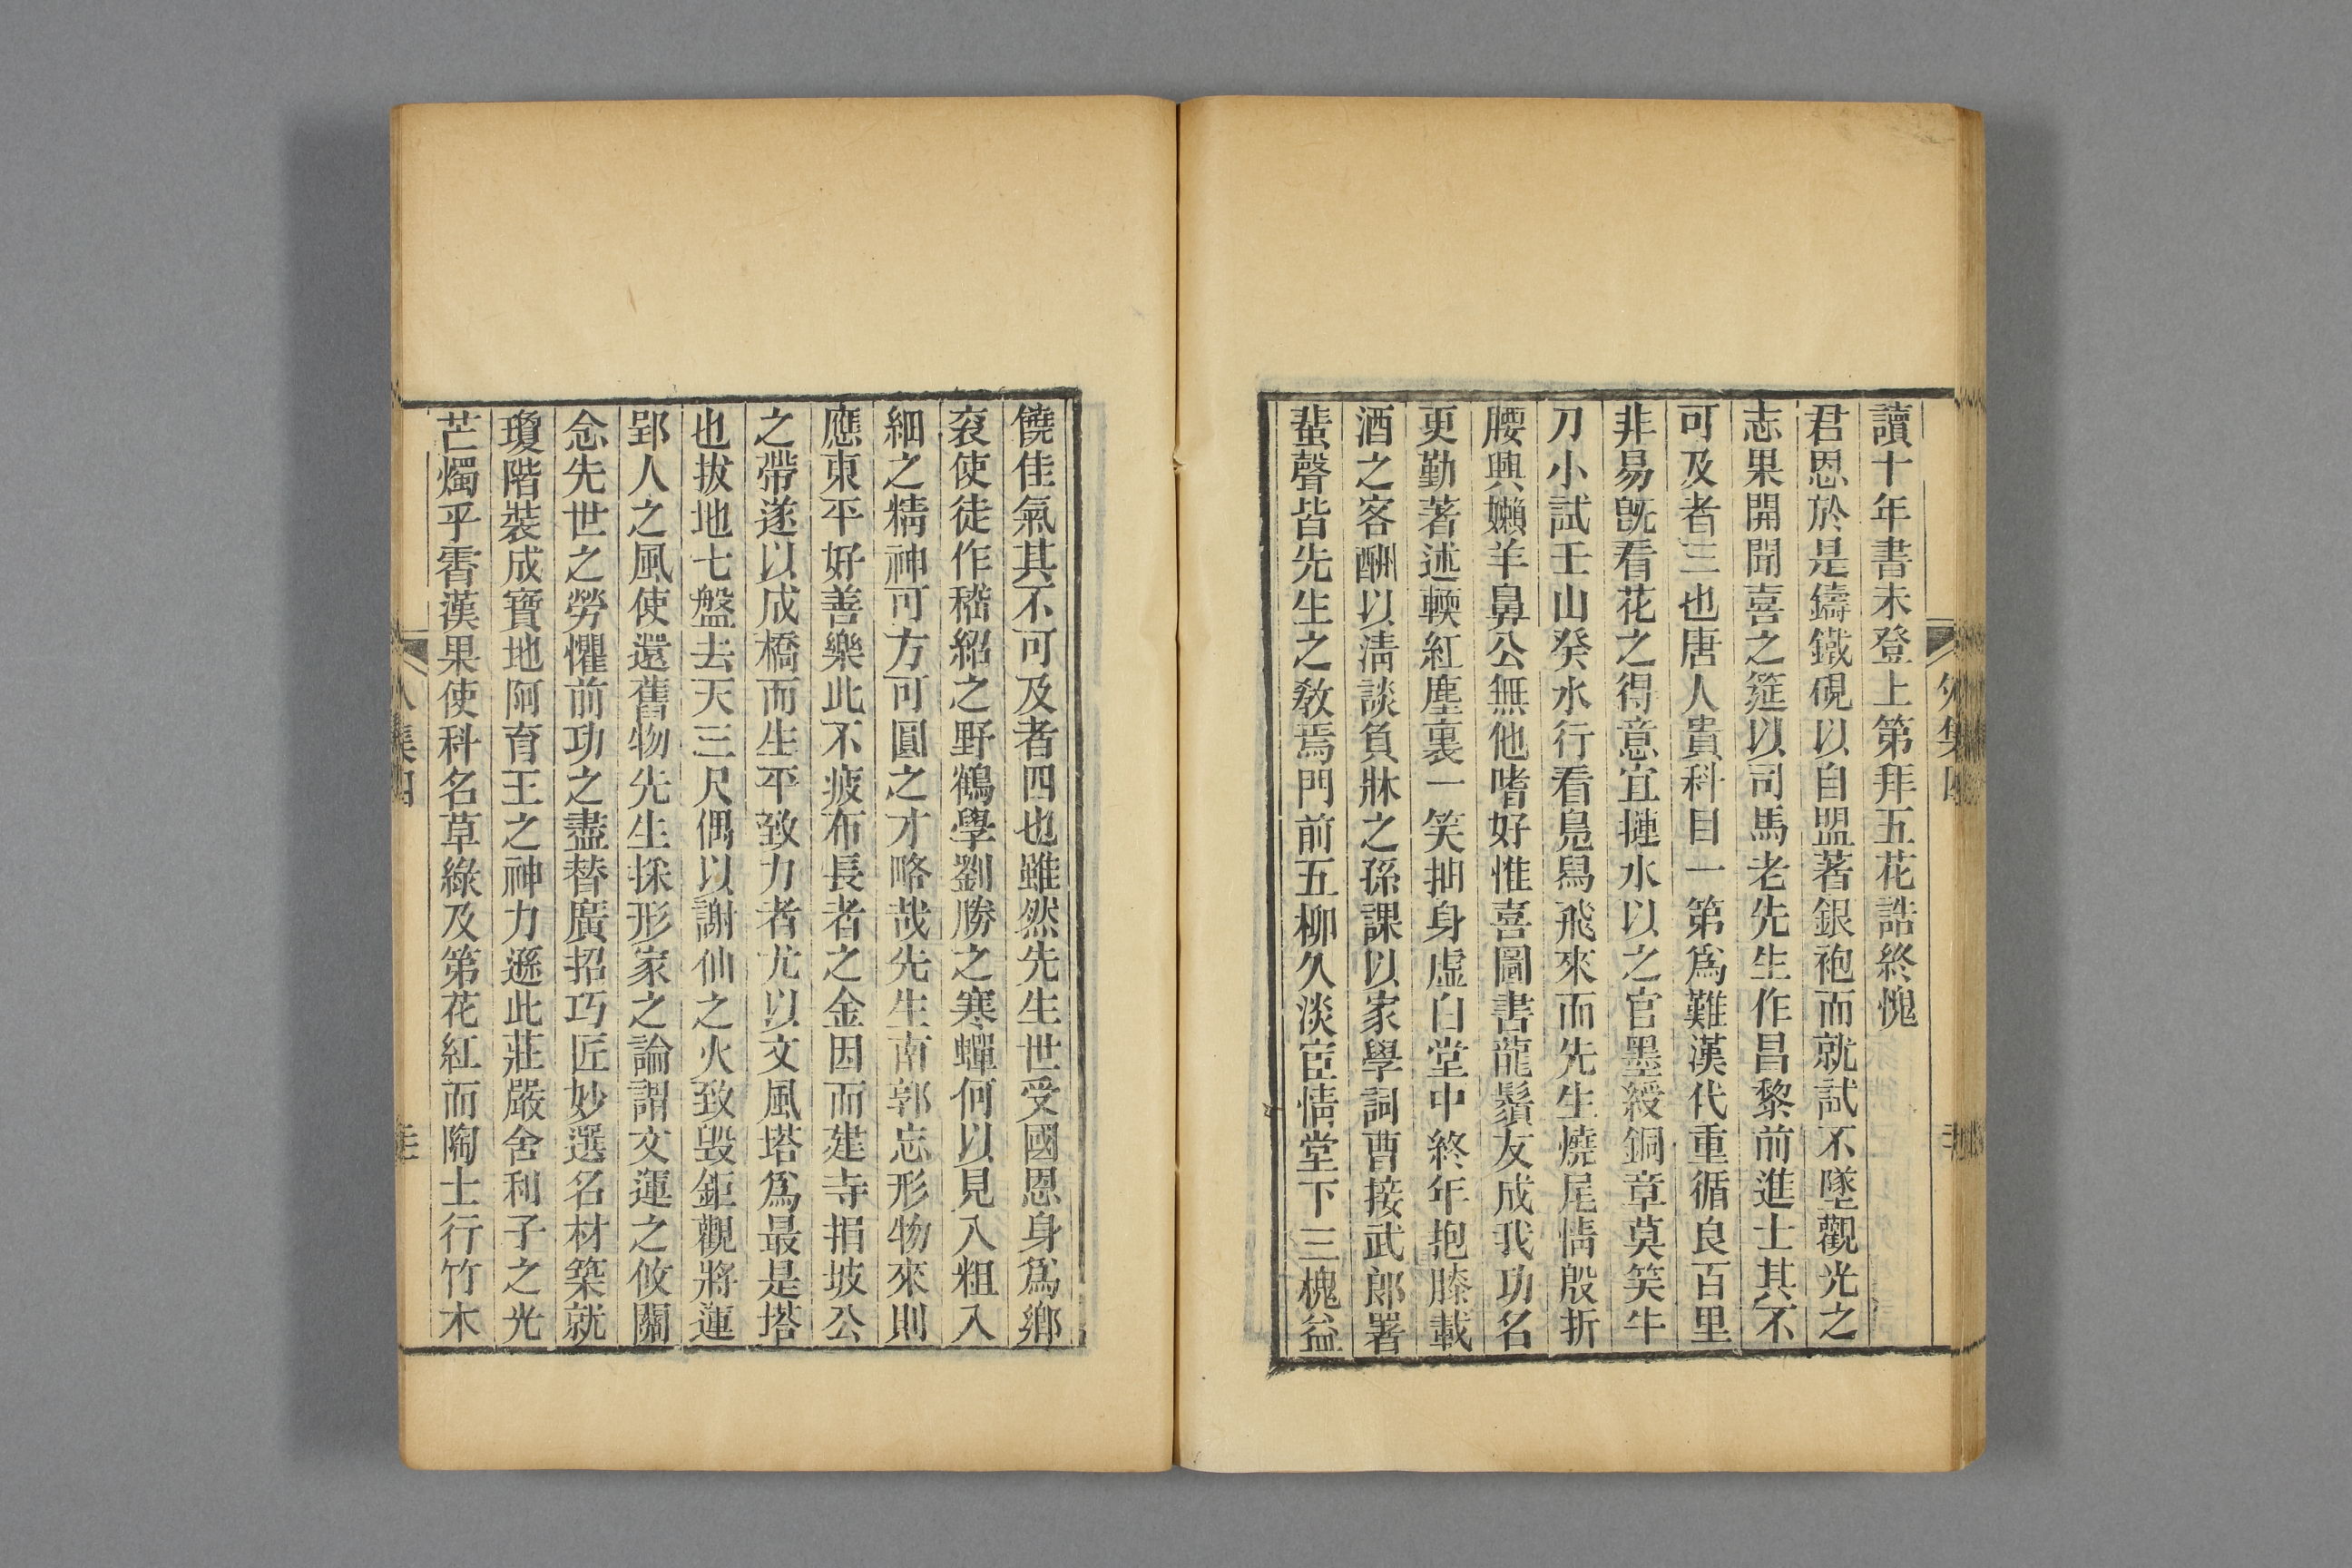 讀十年書未登上第拜五花誥終愧
君恩於是鑄鐵硯以自盟著銀袍而就試不墜觀光之
志果開聞喜之筵以司馬老先生作昌黎前進士其不
可及者三也唐人貴科目一第爲難漢代重循良百里
非易旣看花之得意宜摙水以之官墨綬銅章莫笑牛
刀小試壬山癸水行看鳧舄飛來而先生燒尾情殷折
腰興嬾羊鼻公無他嗜好惟喜圖書龍鬚友成我功名
更勤著述輭紅塵裏一笑抽身虛白堂中終年抱膝載
酒之客酬以淸談負牀之孫課以家學詞曹接武郎署
蜚聲皆先生之敎焉門前五柳久淡宦情堂下三槐益
饒佳氣其不可及者四也雖然先生世受國恩身爲鄉
袞使徒作嵇紹之野鶴學劉勝之寒蟬何以見入粗入
細之精神可方可圓之才略哉先生南郭忘形物來則
應東平好善樂此不疲布長者之金因而建寺捐坡公
之帶遂以成橋而生平致力者尤以文風塔爲最是塔
也拔地七盤去天三尺偶以謝仙之火致毀鉅觀將運
郢人之風使還舊物先生採形家之論謂文運之攸關
念先世之勞懼前功之盡替廣招巧匠妙選名材築就
瓊階裝成寶地阿育王之神力遜此莊嚴舍利子之光
芒燭乎霄漢果使科名草綠及第花紅而陶士行竹木